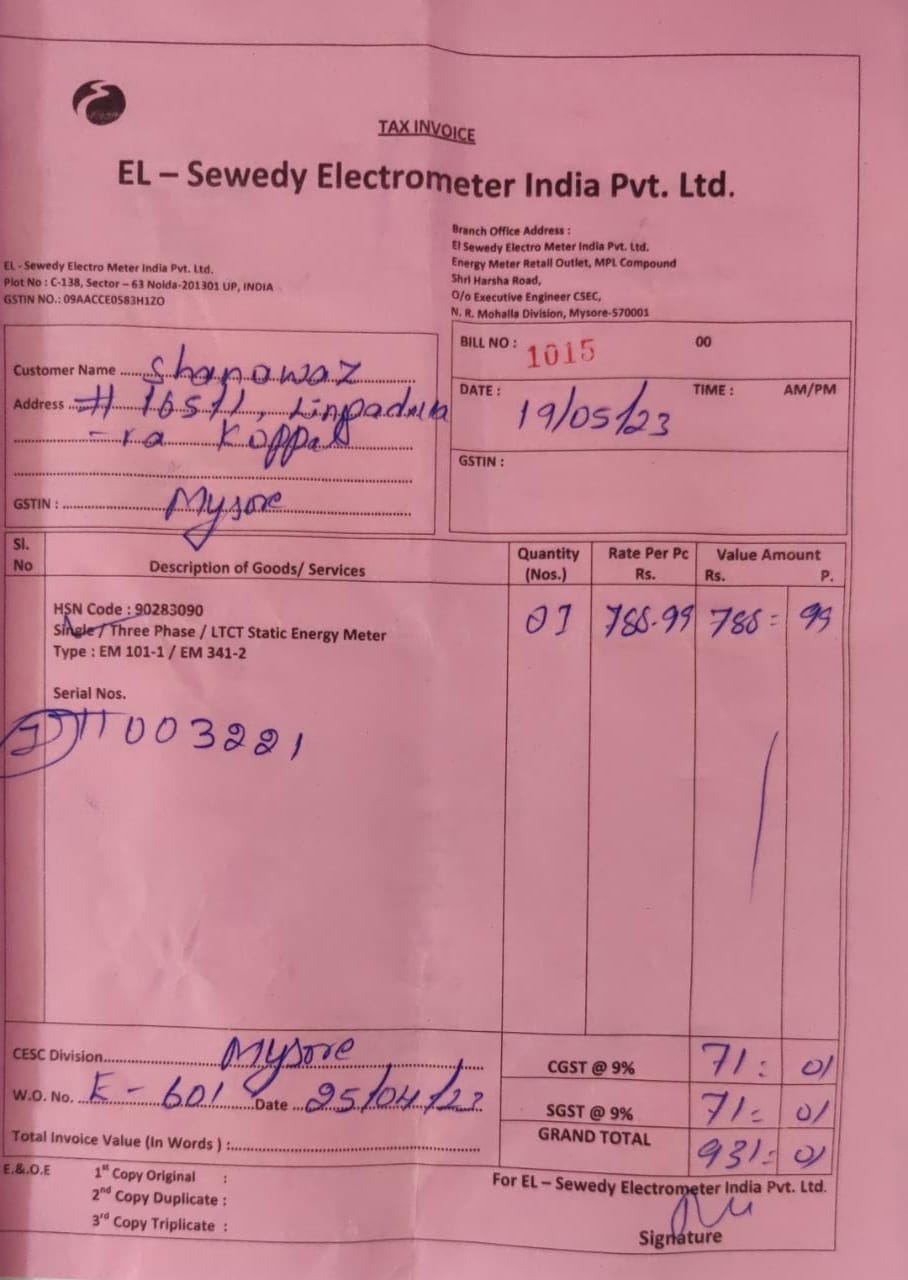 TAX INVOICE
EL – Sewedy Electrometer India Pvt. Ltd.
EL - Sewedy Electro Meter India Pvt. Ltd.
Plot No : C-138, Sector – 63 Noida-201301 UP, INDIA
GSTIN NO.: 09AACCE0583H1ZO
Branch Office Address :
El Sewedy Electro Meter India Pvt. Ltd.
Energy Meter Retail Outlet, MPL Compound
Shri Harsha Road,
O/o Executive Engineer CSEC,
N. R. Mohalla Division, Mysore-570001
Customer Name Shanawaz
Address # 1651/1,
-ra Koppal
GSTIN : Mysore
BILL NO : 1015 00
DATE : 19/05/23 TIME : AM/PM
GSTIN :
Sl. No Description of Goods/ Services Quantity (Nos.) Rate Per Pc Rs. Value Amount Rs. P.
HSN Code : 90283090 01 788.99 788= 99
Single / Three Phase / LTCT Static Energy Meter
Type : EM 101-1 / EM 341-2
Serial Nos.
003221
CESC Division Mysore
W.O. No. E - 601 Date 25/04/23
Total Invoice Value (In Words ) :
CGST @ 9% 71: 01
SGST @ 9% 71= 01
GRAND TOTAL 931= 01
E.&.O.E 1st Copy Original :
2nd Copy Duplicate :
3rd Copy Triplicate :
For EL – Sewedy Electrometer India Pvt. Ltd.
Signature